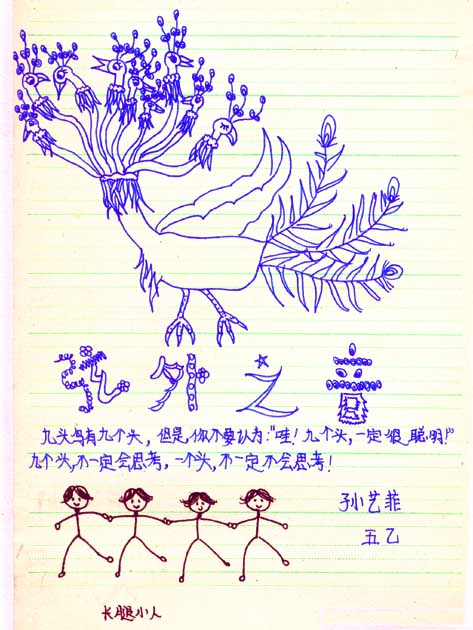 弦外之音
九头鸟有九个头，但是，你不要认为："哇！九个头，一定很聪明！"
九个头，不一定会思考，一个头，不一定不会思考！
孙艺菲
五乙
长腿小人